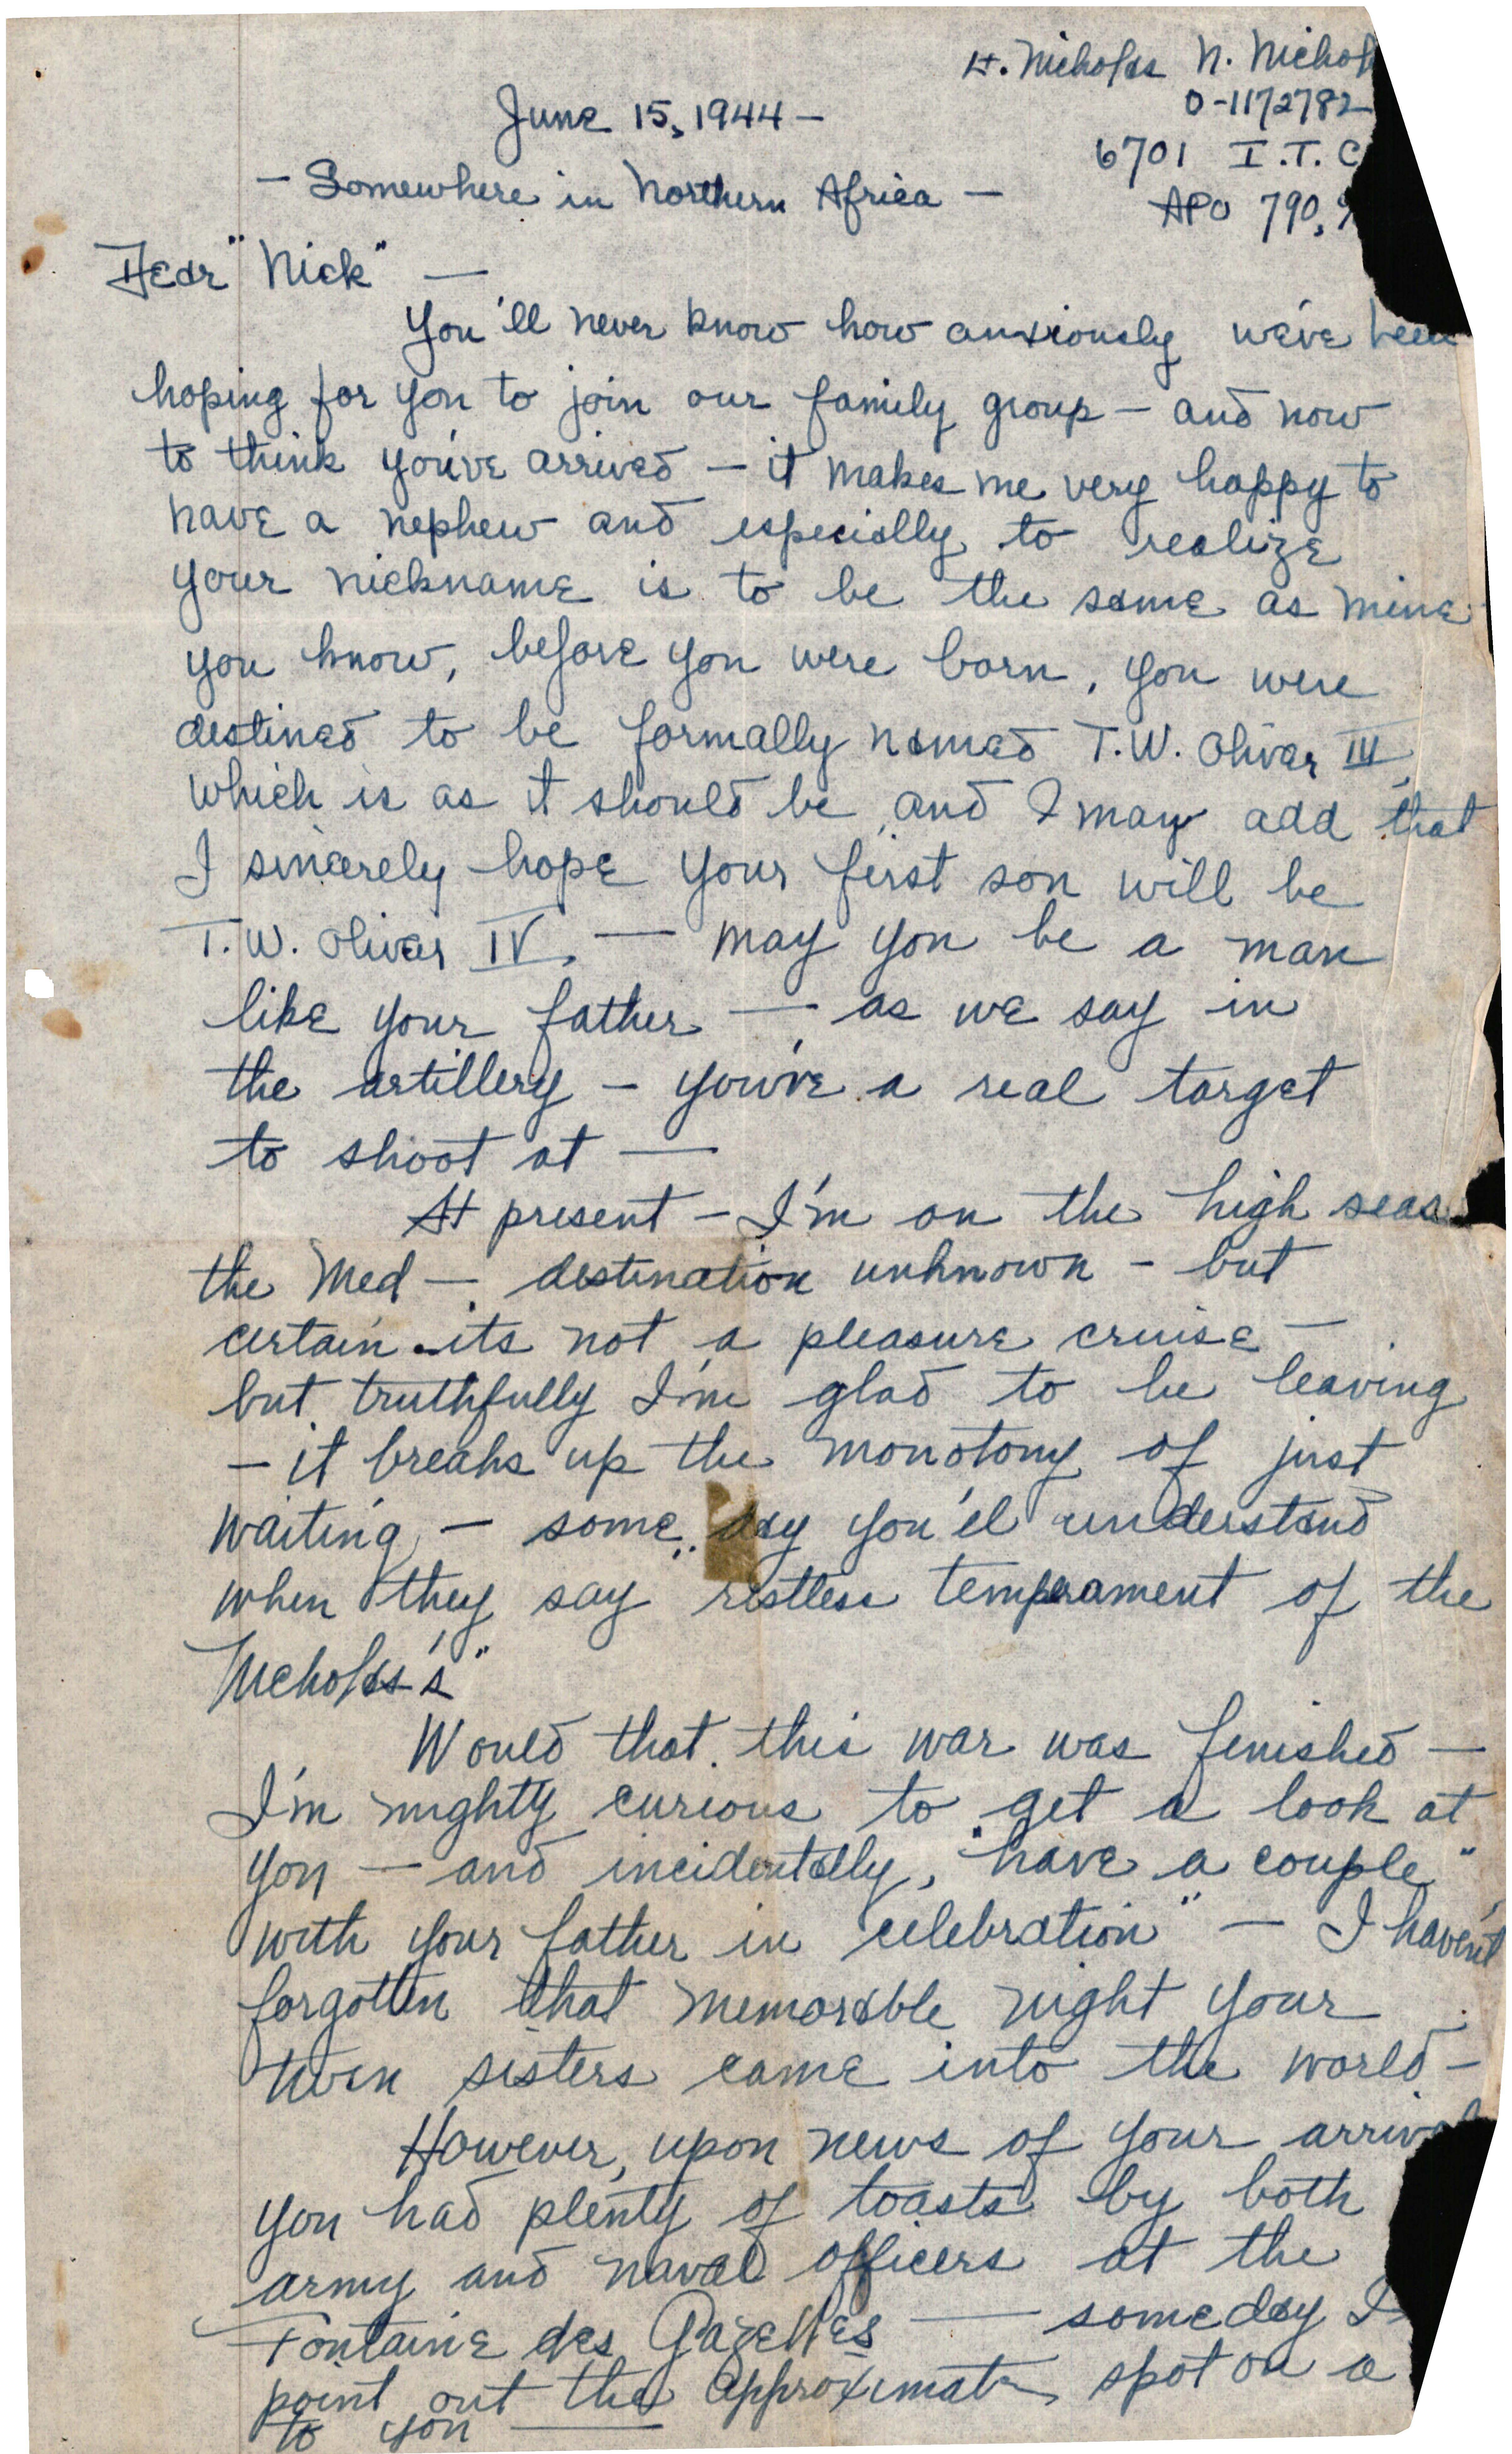 Lt. Nicholas N. Nichol
O-1172782
June 15, 1944 —
6701 I.T. C
— Somewhere in Northern Africa —
APO 790,
Dear "Nick" —
You'll never know how anxiously we've been
hoping for you to join our family group — and now
to think you've arrived — it makes me very happy to
have a nephew and especially to realize
your nickname is to be the same as mine
you know, before you were born, you were
destined to be formally named T.W. Oliver III,
which is as it should be, and I may add that
I sincerely hope your first son will be
T.W. Oliver IV. — may you be a man
like your father — as we say in
the artillery — you've a real target
to shoot at —
At present — I'm on the high seas
the Med — destination unknown — but
certain its not a pleasure cruise —
but truthfully I'm glad to be leaving
— it breaks up the monotony of just
waiting — some day you'll understand
when they say "restless temperament of the
Nicholas's"
Would that this war was finished —
I'm mighty curious to get a look at
you — and incidentally, "have a couple"
with your father in "celebration" — I haven't
forgotten that memorable night your
twin sisters came into the world —
However, upon news of your arrival
you had plenty of toasts by both
army and naval officers at the
Fontaine des Gazelles — someday I
point out the approximate spot on a
to you —